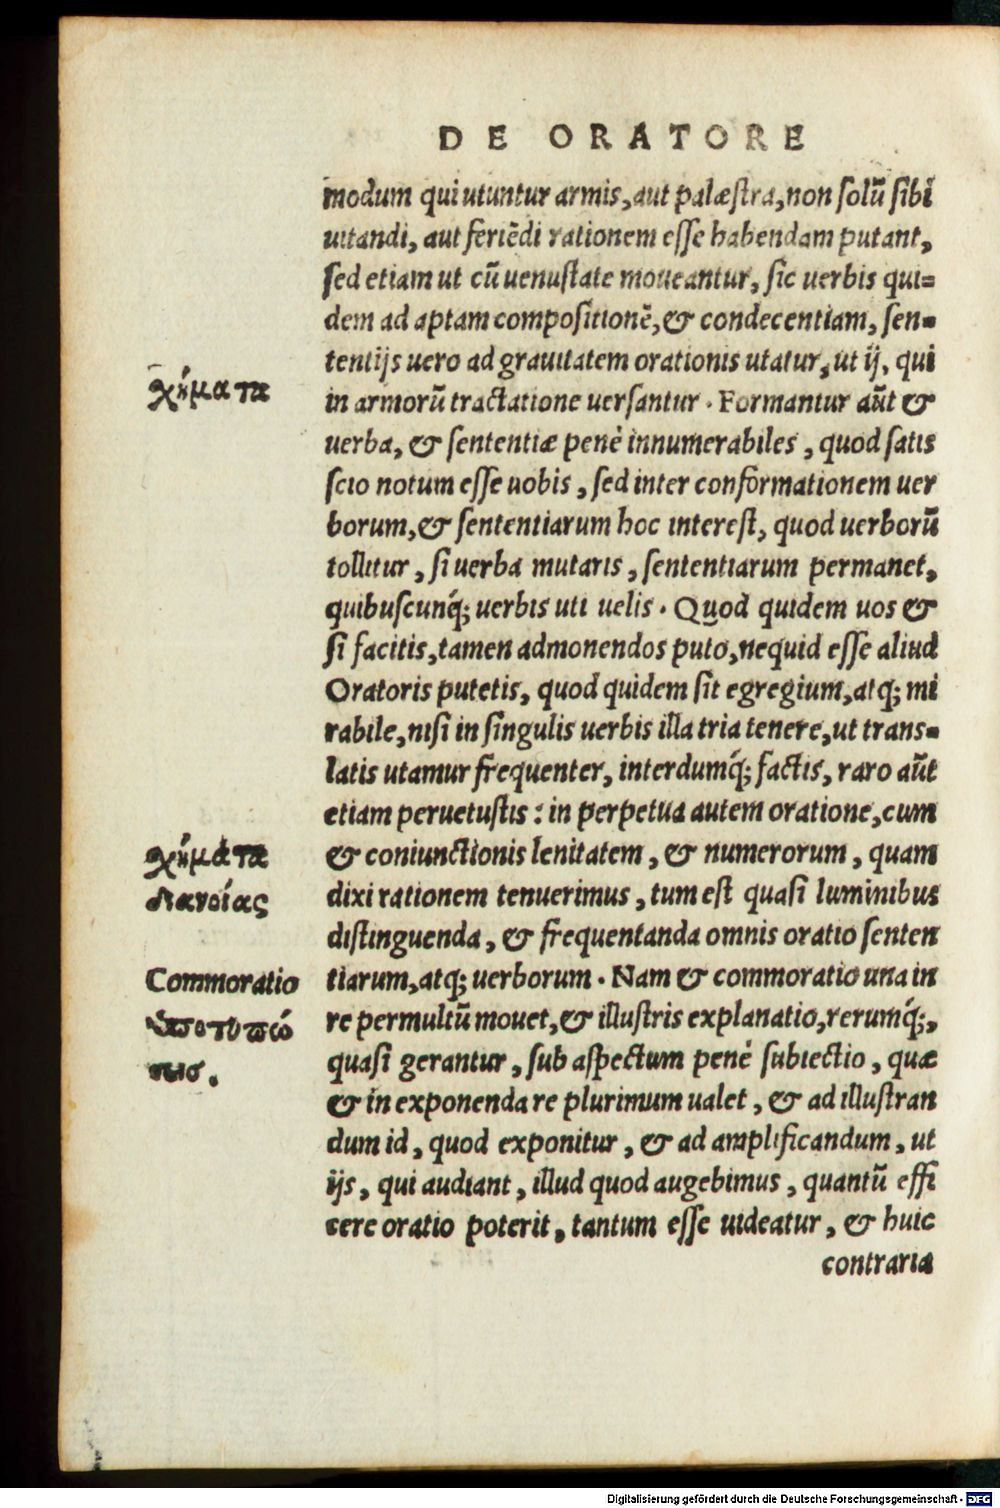 DE ORATORE
modum qui utuntur armis, aut palæstra, non solũ sibi
uitandi, aut feriẽdi rationem esse habendam putant,
sed etiam ut cũ uenustate moueantur, sic uerbis qui=
dem ad aptam compositionẽ, & condecentiam, sen=
tentijs uero ad grauitatem orationis utatur, ut ij, qui
σχήματα
in armorũ tractatione uersantur. Formantur aũt &
uerba, & sententiæ penè innumerabiles, quod satis
scio notum esse uobis, sed inter conformationem uer
borum, & sententiarum hoc interest, quod uerborũ
tollitur, si uerba mutaris, sententiarum permanet,
quibuscunq́; uerbis uti uelis. Quod quidem uos &
si facitis, tamen admonendos puto, nequid esse aliud
Oratoris putetis, quod quidem sit egregium, atq; mi
rabile, nisi in singulis uerbis illa tria tenere, ut trans=
latis utamur frequenter, interdumq́; factis, raro aũt
etiam peruetustis: in perpetua autem oratione, cum
σχήματα
διανοίας
& coniunctionis lenitatem, & numerorum, quam
dixi rationem tenuerimus, tum est quasi luminibus
distinguenda, & frequentanda omnis oratio senten
Commoratio
tiarum, atq; uerborum. Nam & commoratio una in
ὑποτυπώ
σεισ.
re permultũ mouet, & illustris explanatio, rerumq́;,
quasi gerantur, sub aspectum penè subiectio, quæ
& in exponenda re plurimum ualet, & ad illustran
dum id, quod exponitur, & ad amplificandum, ut
ijs, qui audiant, illud quod augebimus, quantũ effi
cere oratio poterit, tantum esse uideatur, & huic
contraria
Digitalisierung gefördert durch die Deutsche Forschungsgemeinschaft - DFG